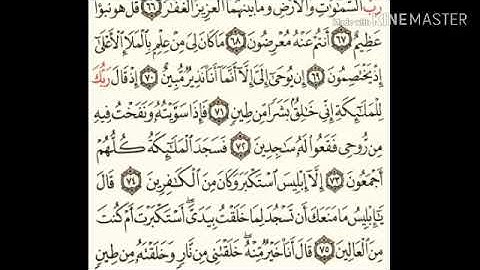 رَبُّ السَّمَٰوَٰتِ وَالْأَرْضِ وَمَا بَيْنَهُمَا الْعَزِيزُ الْغَفَّٰرُ ٦٦ قُلْ هُوَ نَبَؤٌا۟
عَظِيمٌ ٦٧ أَنتُمْ عَنْهُ مُعْرِضُونَ ٦٨ مَا كَانَ لِيَ مِنْ عِلْمٍۭ بِالْمَلَإِ الْأَعْلَىٰٓ
إِذْ يَخْتَصِمُونَ ٦٩ إِن يُوحَىٰٓ إِلَيَّ إِلَّآ أَنَّمَآ أَنَا۠ نَذِيرٌ مُّبِينٌ ٧٠ إِذْ قَالَ رَبُّكَ
لِلْمَلَٰٓئِكَةِ إِنِّي خَٰلِقٌۢ بَشَرًا مِّن طِينٍ ٧١ فَإِذَا سَوَّيْتُهُۥ وَنَفَخْتُ فِيهِ
مِن رُّوحِي فَقَعُوا۟ لَهُۥ سَٰجِدِينَ ٧٢ فَسَجَدَ الْمَلَٰٓئِكَةُ كُلُّهُمْ
أَجْمَعُونَ ٧٣ إِلَّآ إِبْلِيسَ اسْتَكْبَرَ وَكَانَ مِنَ الْكَٰفِرِينَ ٧٤ قَالَ
يَٰٓإِبْلِيسُ مَا مَنَعَكَ أَن تَسْجُدَ لِمَا خَلَقْتُ بِيَدَيَّ ۖ أَسْتَكْبَرْتَ أَمْ كُنتَ
مِنَ الْعَالِينَ ٧٥ قَالَ أَنَا۠ خَيْرٌ مِّنْهُ ۖ خَلَقْتَنِي مِن نَّارٍ وَخَلَقْتَهُۥ مِن طِينٍ
Made with KINEMASTER